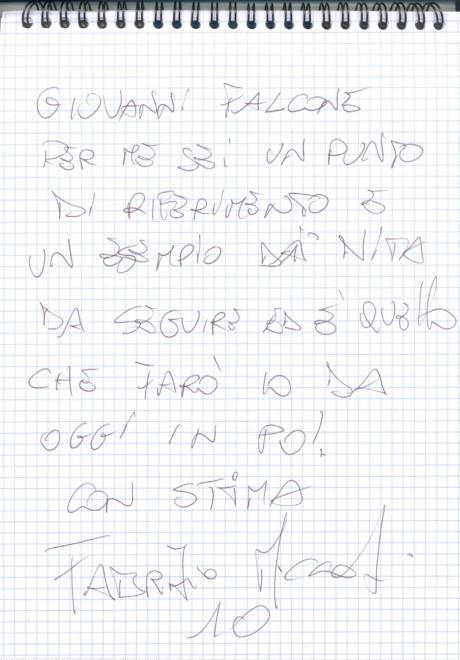 GIOVANNI FALCONE
PER ME SEI UN PUNTO
DI RIFERIMENTO E
UN ESEMPIO DA VITA
DA SEGUIRE ED È QUELLO
CHE FARÒ IO DA
OGGI IN POI
CON STIMA
FABRIZIO MICCOLI
10